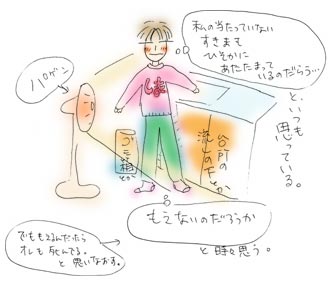 私の当たっていない
すきまも
ひそかに
あたたまって
いるのだらう…
と、いつも
思っている。
ハロゲン
しま
ゴミ箱
とか
台所の
流しの下
とか
もえないのだろうか
と時々思う。
でももえるんだったら
オレも死んでる。
と思いなおす。